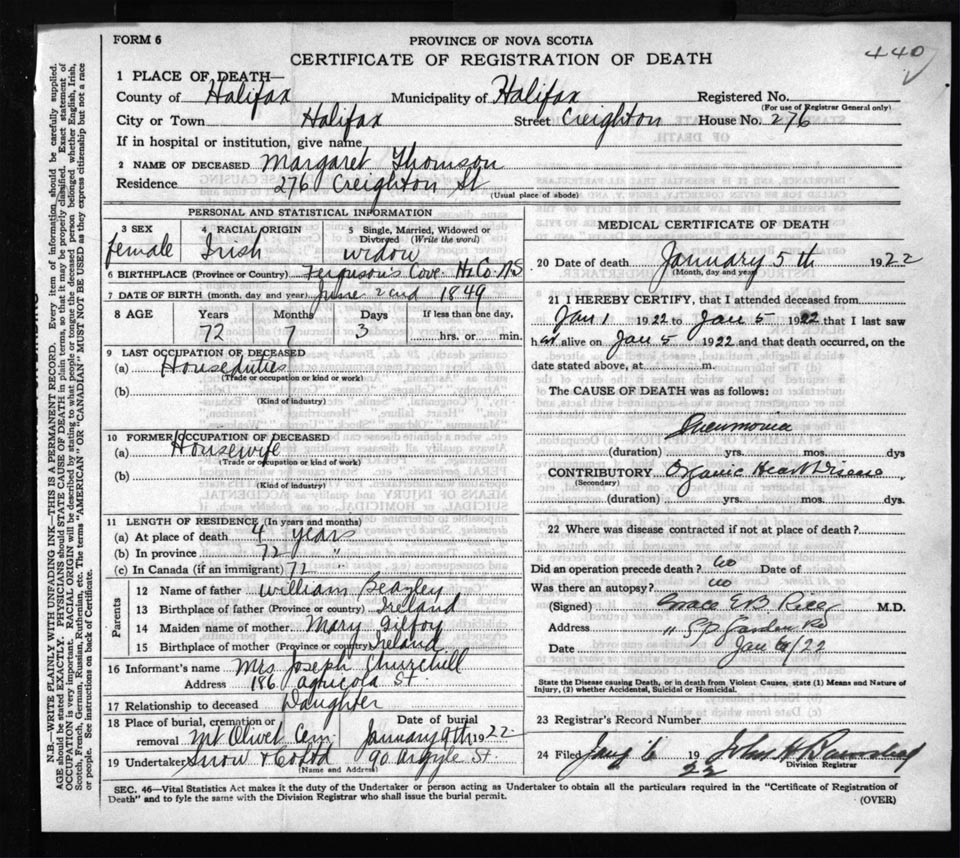 FORM 6
PROVINCE OF NOVA SCOTIA
CERTIFICATE OF REGISTRATION OF DEATH
440
1 PLACE OF DEATH—
County of Halifax Municipality of Halifax Registered No.
(For use of Registrar General only)
City or Town Halifax Street Creighton House No. 276
If in hospital or institution, give name
2 NAME OF DECEASED Margaret Thomson
Residence 276 Creighton St
(Usual place of abode)
PERSONAL AND STATISTICAL INFORMATION
3 SEX 4 RACIAL ORIGIN 5 Single, Married, Widowed or Divorced (Write the word)
female Irish widow
6 BIRTHPLACE (Province or Country) Ferguson's Cove Hx Co. NS
7 DATE OF BIRTH (month, day and year) June 2nd 1849
8 AGE Years Months Days If less than one day,
72 7 3 hrs. or min.
9 LAST OCCUPATION OF DECEASED
(a) Houseduties
(Trade or occupation or kind or work)
(b)
(Kind of industry)
10 FORMER OCCUPATION OF DECEASED
(a) Housewife
(Trade or occupation or kind of work)
(b)
(Kind of industry)
11 LENGTH OF RESIDENCE (In years and months)
(a) At place of death 4 years
(b) In province 72 "
(c) In Canada (if an immigrant) 72 "
Parents
12 Name of father William Beazley
13 Birthplace of father (Province or country) Ireland
14 Maiden name of mother Mary Gilfoy
15 Birthplace of mother (Province or country) Ireland
16 Informant's name Mrs Joseph Churchill
Address 186 Agricola St.
17 Relationship to deceased Daughter
18 Place of burial, cremation or removal Mt Olivet Cem. Date of burial January 9th 1922
19 Undertaker Snow & 90 Argyle St.
(Name and Address)
MEDICAL CERTIFICATE OF DEATH
20 Date of death January 5th 1922
(Month, day and year)
21 I HEREBY CERTIFY, that I attended deceased from
Jan 1 1922 to Jan 5 1922 that I last saw
her alive on Jan 5 1922 and that death occurred, on the
date stated above, at m.
The CAUSE OF DEATH was as follows:
Pneumonia
(duration) yrs. mos. dys
CONTRIBUTORY Organic Heart Disease
(Secondary)
(duration) yrs. mos. dys.
22 Where was disease contracted if not at place of death?
Did an operation precede death? No Date of
Was there an autopsy? no
(Signed) Grace E.B. Rice M.D.
Address S.P. Garden Rd
Date Jan 6/22
State the Disease causing Death, or in death from Violent Causes, state (1) Means and Nature of
Injury, (2) whether Accidental, Suicidal or Homicidal.
23 Registrar's Record Number
24 Filed Jany 6 1922 John H
Division Registrar
SEC. 46—Vital Statistics Act makes it the duty of the Undertaker or person acting as Undertaker to obtain all the particulars required in the "Certificate of Registration of
Death" and to fyle the same with the Division Registrar who shall issue the burial permit.
(OVER)
N.B.—WRITE PLAINLY WITH UNFADING INK—THIS IS A PERMANENT RECORD. Every item of information should be carefully supplied.
AGE should be stated EXACTLY. PHYSICIANS should STATE CAUSE OF DEATH in plain terms, so that it may be properly classified. Exact statement of
OCCUPATION is very important. RACIAL ORIGIN will be described by stating to what people or tongue the deceased person belonged whether English, Irish,
Scotch, French, German, Russian, Ruthenian, etc. The terms "AMERICAN" OR CANADIAN" MUST NOT BE USED as they express citizenship but not a race
or people. See instructions on back of Certificate.